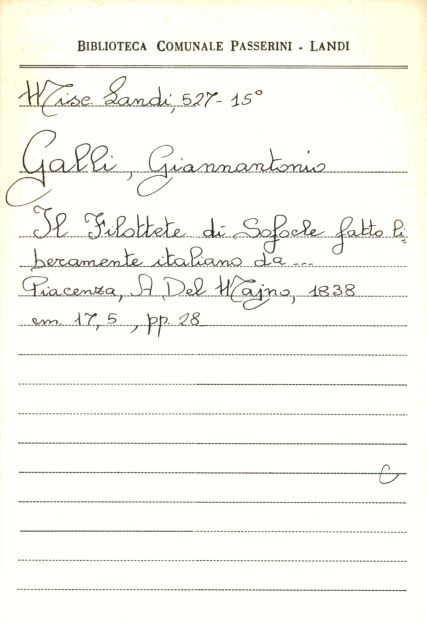 BIBLIOTECA COMUNALE PASSERINI - LANDI
Misc. Landi, 527-15°
Galli, Giannantonio
Il Filottete di Sofocle fatto li=
beramente italiano da ...
Piacenza, A. Del Majno, 1838
cm. 17,5, pp. 28
C